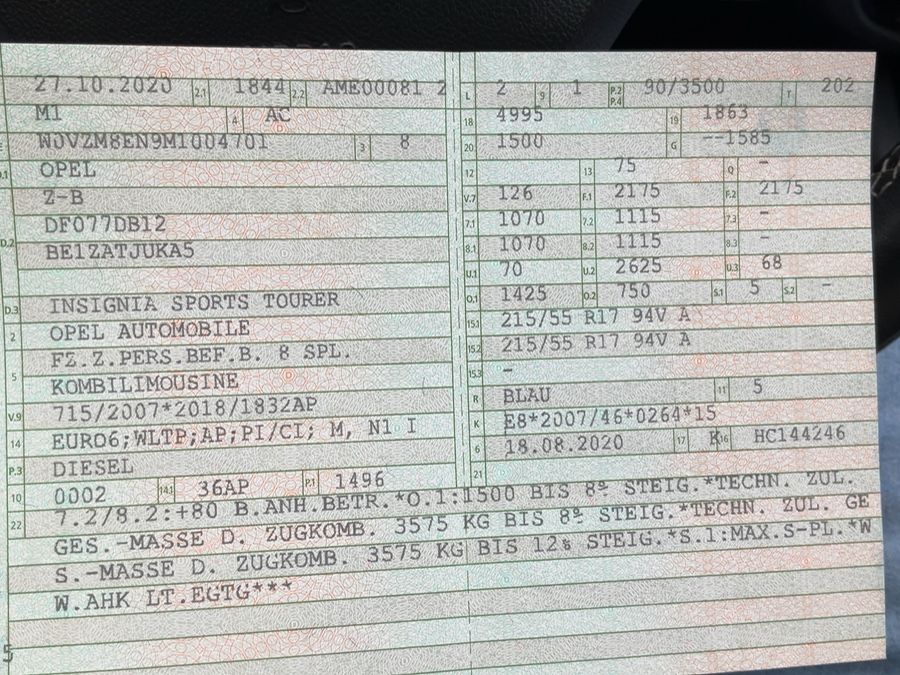 27.10.2020 2.1 1844 2.2 AME00081 2
M1 4 AC
W0VZM8EN9M1004701 3 8
D.1 OPEL
Z-B
DF077DB12
D.2 BE1ZATJUKA5
D.3 INSIGNIA SPORTS TOURER
2 OPEL AUTOMOBILE
FZ.Z.PERS.BEF.B. 8 SPL.
5 KOMBILIMOUSINE
V.9 715/2007*2018/1832AP
14 EURO6;WLTP;AP;PI/CI; M, N1 I
P.3 DIESEL
10 0002 14.1 36AP P.1 1496
L 2 9 1 P.2 P.4 90/3500 T 202
18 4995 19 1863
20 1500 G --1585
12 13 75 Q -
V.7 126 F.1 2175 F.2 2175
7.1 1070 7.2 1115 7.3 -
8.1 1070 8.2 1115 8.3 -
U.1 70 U.2 2625 U.3 68
O.1 1425 O.2 750 S.1 5 S.2 -
15.1 215/55 R17 94V A
15.2 215/55 R17 94V A
15.3 -
R BLAU 11 5
K E8*2007/46*0264*15
6 18.08.2020 17 K 16 HC144246
21
22 7.2/8.2:+80 B.ANH.BETR.*O.1:1500 BIS 8% STEIG.*TECHN. ZUL.
GES.-MASSE D. ZUGKOMB. 3575 KG BIS 8% STEIG.*TECHN. ZUL. GE
S.-MASSE D. ZUGKOMB. 3575 KG BIS 12% STEIG.*S.1:MAX.S-PL.*W
W.AHK LT.EGTG***
5